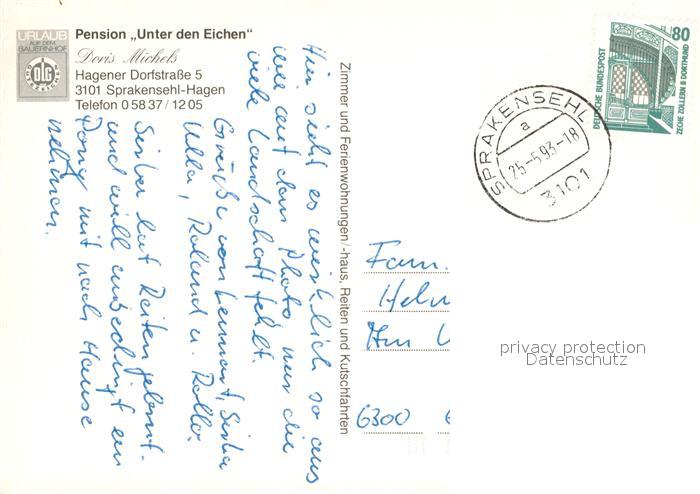 URLAUB
AUF DEM
BAUERNHOF
DLG
GÜTEZEICHEN
Pension „Unter den Eichen“
Doris Michels
Hagener Dorfstraße 5
3101 Sprakensehl-Hagen
Telefon 0 58 37 / 12 05
Hier sieht es wirklich so aus
wie auf dem Photo nur die
viele Landschaft fehlt.
Grüße von Lennart, Sinba
Ulla, Roland u. Rollo.
Sinba hat Reiten gelernt
und will unbedingt ein
Pony mit nach Hause
nehmen.
Zimmer und Ferienwohnungen/-haus, Reiten und Kutschfahrten
SPRAKENSEHL
a
25-5.93-18
3101
80
DEUTSCHE BUNDESPOST
ZECHE ZOLLERN II DORTMUND
Fam.
Am
6300
privacy protection
Datenschutz